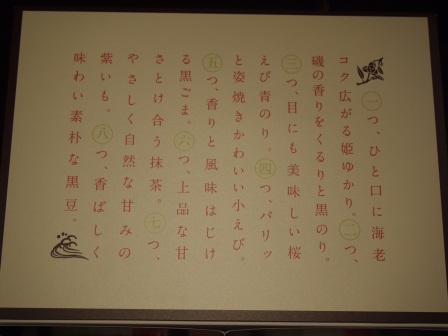 一つ、ひと口に海老
コク広がる姫ゆかり。二つ、
磯の香りをくるりと黒のり。
三つ、目にも美味しい桜
えび青のり。四つ、パリッ
と姿焼きかわいい小えび。
五つ、香りと風味はじけ
る黒ごま。六つ、上品な甘
さとけ合う抹茶。七つ、
やさしく自然な甘みの
紫いも。八つ、香ばしく
味わい素朴な黒豆。